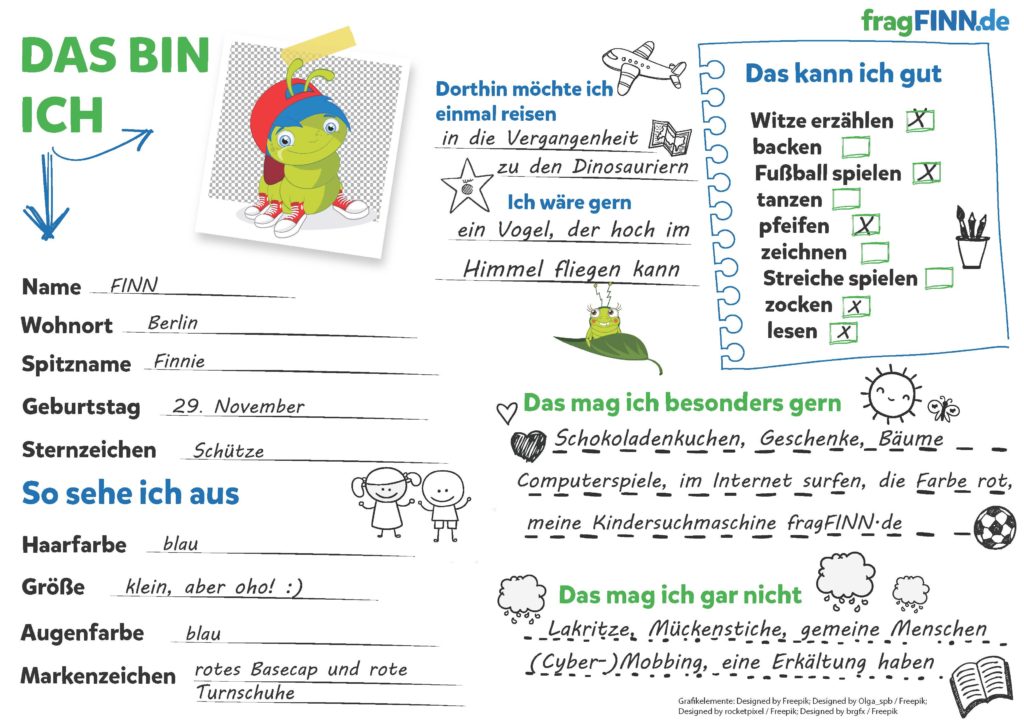 fragFINN.de
DAS BIN
ICH
Name FINN
Wohnort Berlin
Spitzname Finnie
Geburtstag 29. November
Sternzeichen Schütze
So sehe ich aus
Haarfarbe blau
Größe klein, aber oho! :)
Augenfarbe blau
Markenzeichen rotes Basecap und rote
Turnschuhe
Dorthin möchte ich
einmal reisen
in die Vergangenheit
zu den Dinosauriern
Ich wäre gern
ein Vogel, der hoch im
Himmel fliegen kann
Das kann ich gut
Witze erzählen X
backen
Fußball spielen X
tanzen
pfeifen X
zeichnen
Streiche spielen
zocken X
lesen X
Das mag ich besonders gern
Schokoladenkuchen, Geschenke, Bäume
Computerspiele, im Internet surfen, die Farbe rot,
meine Kindersuchmaschine fragFINN.de
Das mag ich gar nicht
Lakritze, Mückenstiche, gemeine Menschen
(Cyber-)Mobbing, eine Erkältung haben
Grafikelemente: Designed by Freepik; Designed by Olga_spb / Freepik;
Designed by rocketpixel / Freepik; Designed by brgfx / Freepik